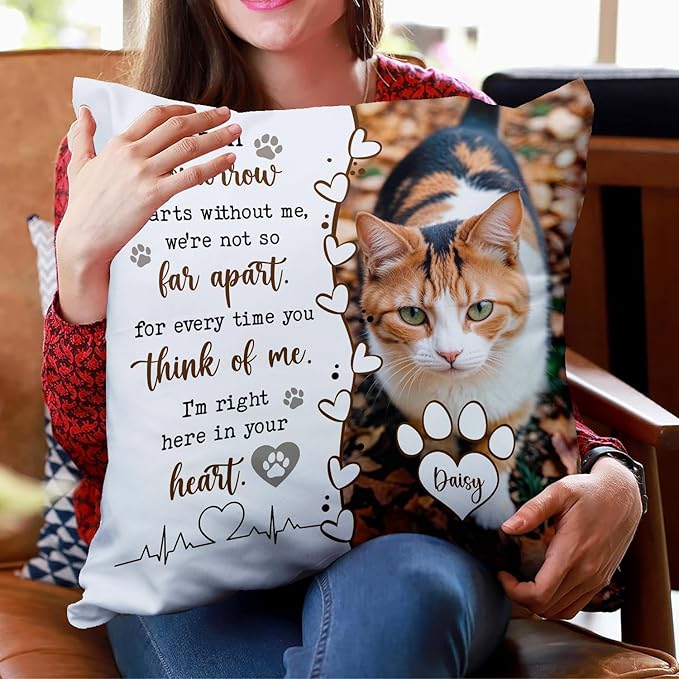 rrow
arts without me,
we're not so
far apart.
for every time you
think of me.
I'm right
here in your
heart.
Daisy